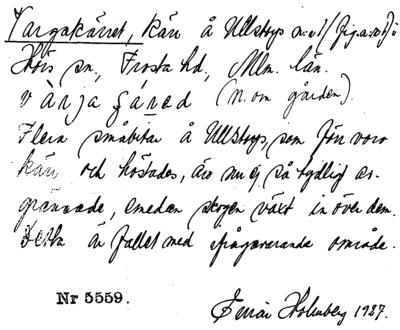 Vargakärret, kärr å Ullstorp n:o 1
Hörs sn, Frosta hd, Mlm. län.
(N. om gården).
Flera småbitar å Ullstorp, som förr voro
kärr och höstades, äro nu ej så tydligt av-
gränsade, emedan skogen växt in över dem.
Detta är fallet med ifrågavarande område.
Nr 5559.
Einar Holmberg 1927.